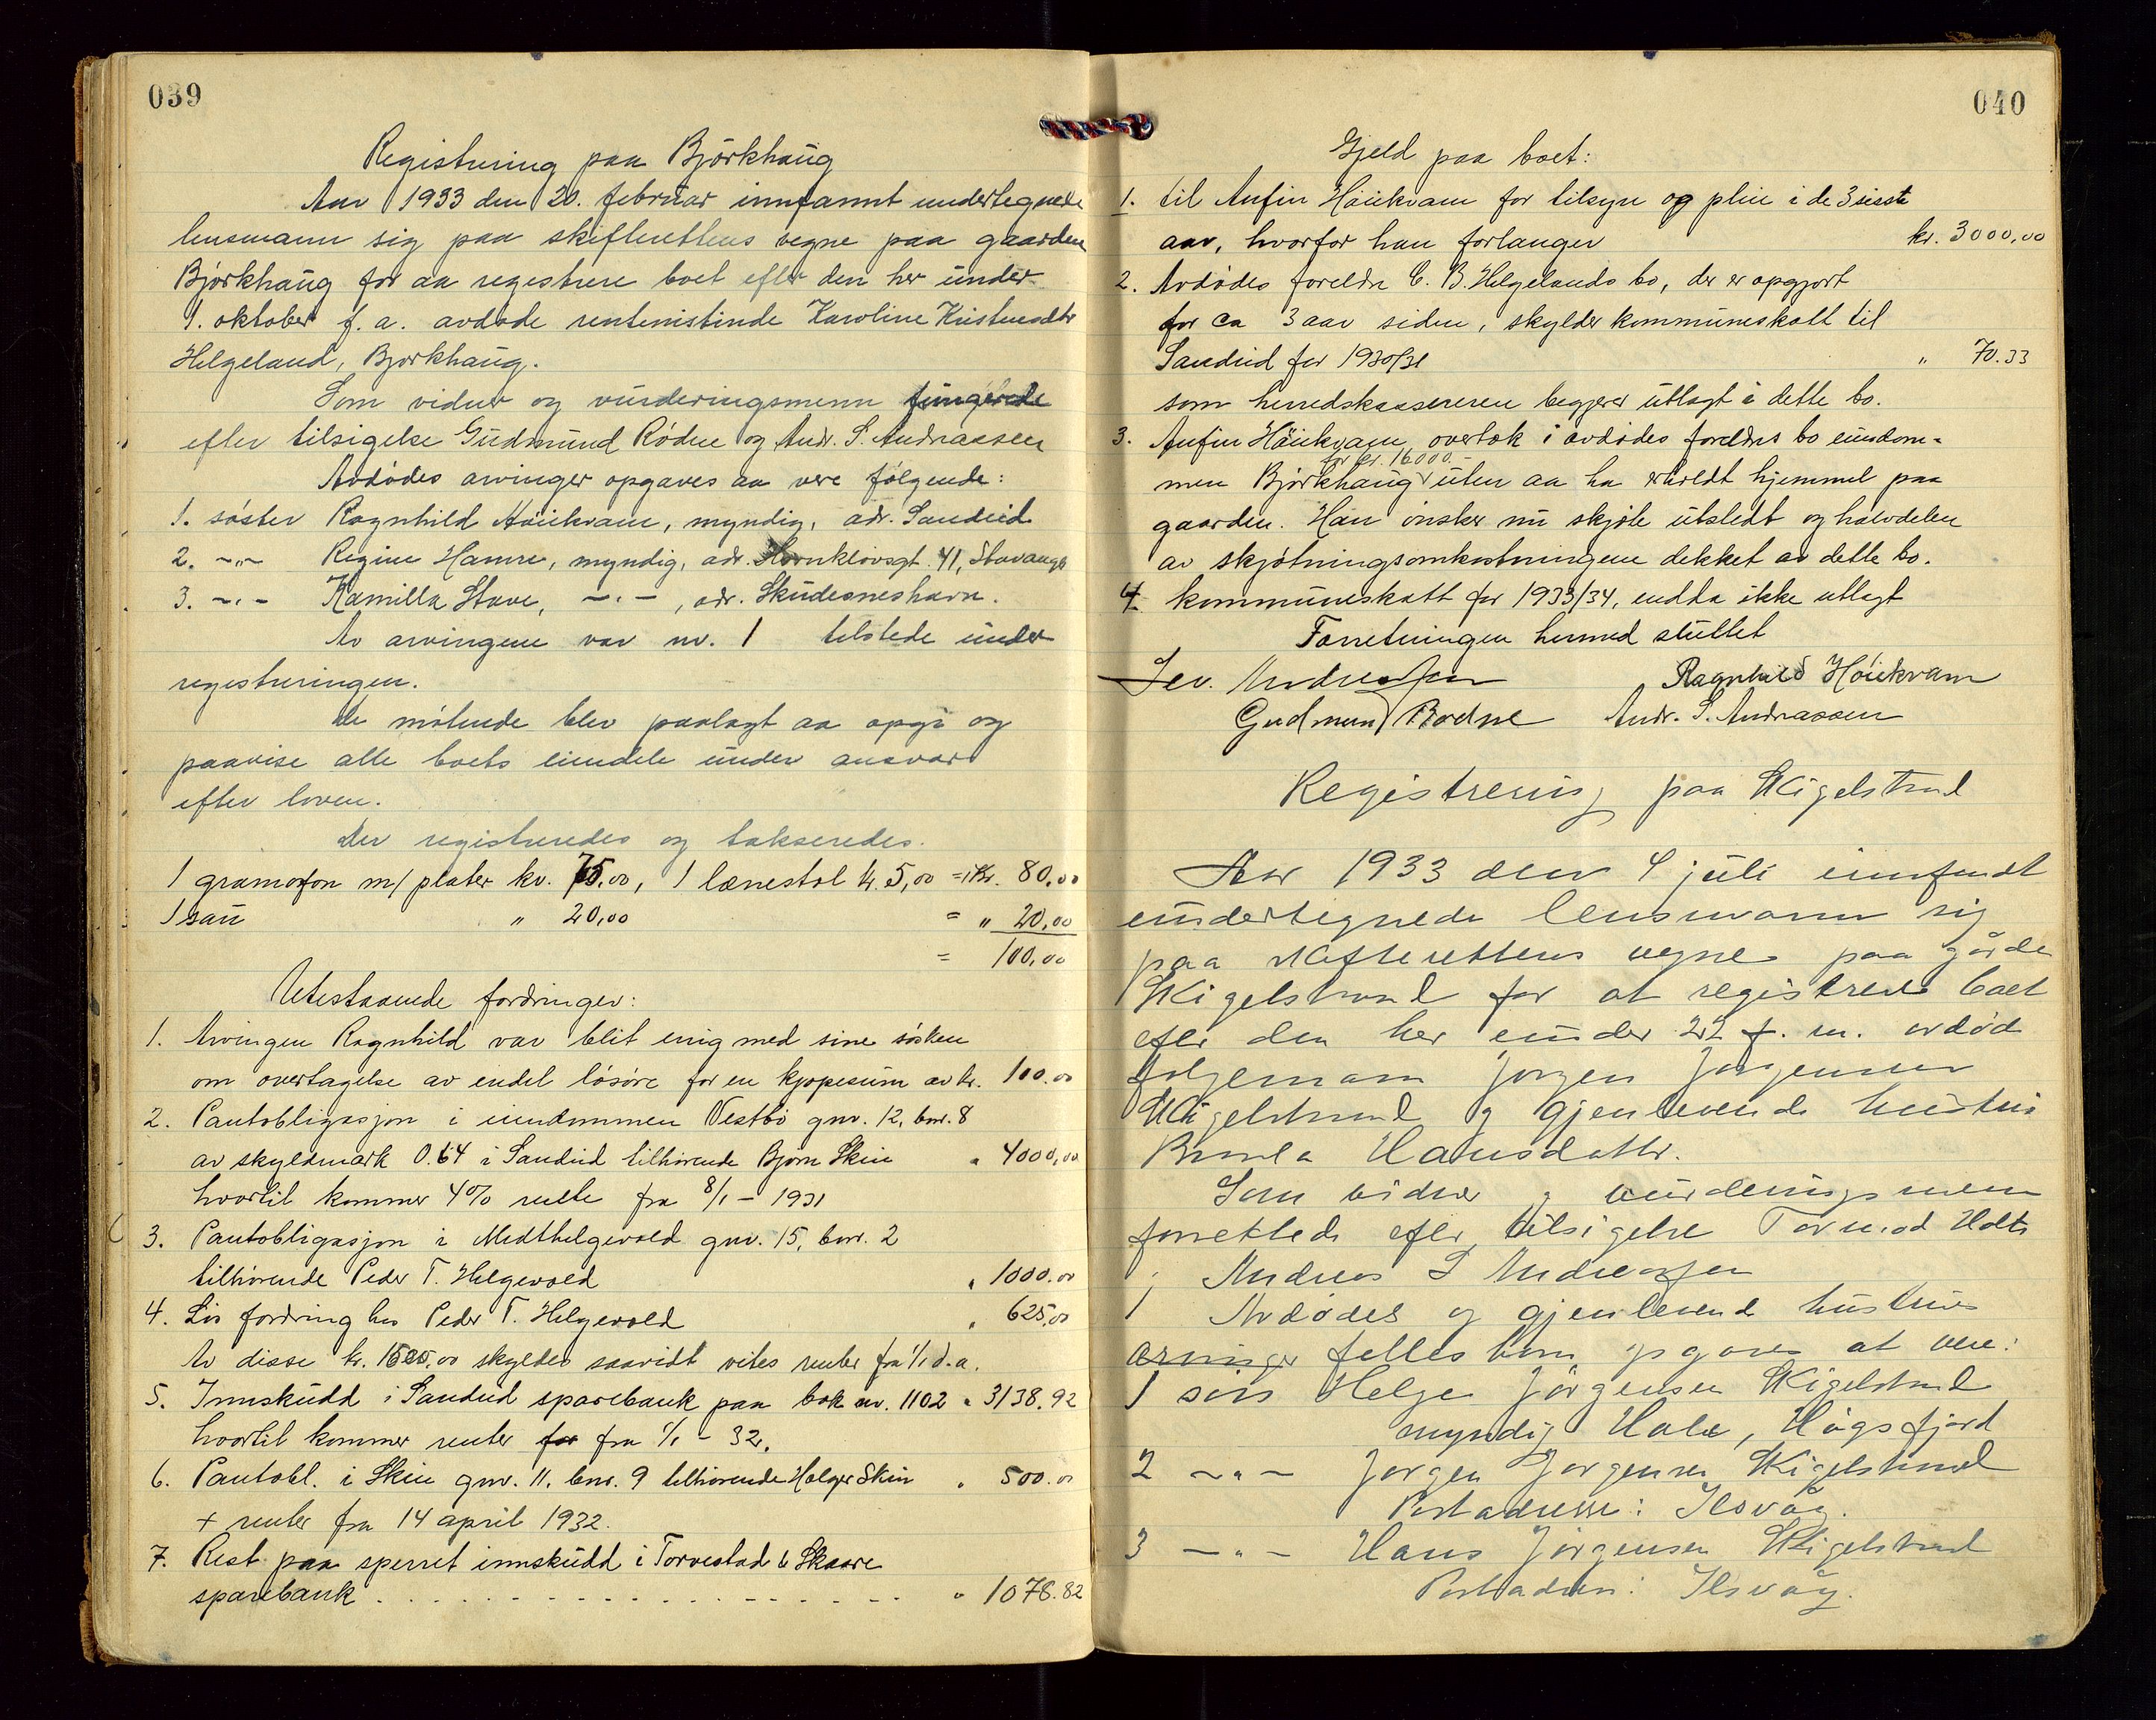 039
Registrering paa Björkhaug
Aar 1933 den 20. februar innfannt undertegnede
lensmann sig paa skifterettens vegne paa gaarden
Björkhaug for aa registrere boet efter den her under
1. oktober f. a. avdöde rentenistinde Karoline Kristensdtr
Helgeland, Bjorkhaug.
Som vidner og vurderingsmenn fungerede
efter tilsigelse Gudmund Rödne og Andr. S. Andreassen
Avdödes arvinger opgaves aa vere følgende:
1. söster Ragnhild Höiekvam, myndig, adr. Sandeid
2. -„- Regine Hamre, myndig, adr. Hornklovsgt. 41, Stavanger
3. -„- Kamilla Stave, -„-, adr. Skudesneshavn.
Av arvingene var nr. 1 tilstede under
registreringen.
De mötende blev paalagt aa opgi og
paavise alle boets eiendele under ansvar
efter loven.
Der registreredes og takseredes.
1 gramofon m/ plater kr. 75,00, 1 lænestol kr. 5,00 = Kr. 80,00
1 sau „ 20,00 = „ 20,00
= 100,00
Utestaaende fordringer:
1. Arvingen Ragnhild var blit enig med sine sösken
om overtagelse av endel lösöre for en kjøpesum av kr. 100.00
2. Pantobligasjon i eiendommen Vestbö gnr. 12, bnr. 8
av skyldmark 0.64 i Sandeid tilhörende Björn Skeie „ 4000,00
hvortil kommer 4% rente fra 8/1 - 1931
3. Pantobligasjon i Medthelgevold gnr. 15, bnr. 2
tilhörende Peder T. Helgevold „ 1000.00
4. Lös fordring hos Peder T. Helgevold „ 625,00
Av disse kr. 1625,00 skyldes saavidt vites renter fra 1/1 d. a.
5. Innskudd i Sandeid sparebank paa bok nr. 1102 „ 3138.92
hvortil kommer renter for fra 1/1 - 32.
6. Pantobl. i Skeie gnr. 11, bnr. 9 tilhörende Holger Skeie „ 500.00
+ renter fra 14 april 1932.
7. Rest paa sperret innskudd i Torvestad & Skaare
sparebank . . . . . „ 1078.82
040
Gjeld paa boet:
1. til Anfin Höiekvam for tilsyn og pleie i de 3 siste
aar, hvorfor han forlanger kr. 3000,00
2. Avdödes foreldre C. B. Helgelands bo, der er opgjort
for ca 3 aar siden, skylder kommuneskatt til
Sandeid for 1930/31 „ 70.33
som herredskassereren begjerer utlagt i dette bo.
3. Anfin Höiekvam overtok i avdödes foreldres bo eiendom-
for kr. 16000.-
men Björkhaug uten aa ha erholdt hjemmel paa
gaarden. Han önsker nu skjöte utstedt og halvdelen
av skjötningsomkostningene dekket av dette bo.
4. kommuneskatt for 1933/34, endda ikke utlagt
Forretningen hermed sluttet
Sev. Andreassen Ragnhild Höiekvam
Gudmund Rødne Andr. S. Andreassen
Registrering paa Kigelstrand
Aar 1933 den 4 juli innfandt
undertegnede lensmann sig
paa skifterettens vegne paa gårde
Kigelstrand for at registrere boet
efter den her under 22 f. m. avdöd
Jørgen Jørgensen
Kigelstrand og gjenlevende hustru
Hansdattr.
Som vidner og vurderingsmenn
forrettede efter tilsigelse Tormod Holta
og Andreas S Andreassen
Avdödes og gjenlevende hustrues
arvinger felles barn opgaves at vere:
1 sön Helge Jörgensen Kigelstrand
myndig Hale, Högsfjord
2 -„- Jørgen Jørgensen Kigelstrand
Postadresse: Ilsvåg.
3 -„- Hans Jørgensen Kigelstrand
Postadress: Ilsvåg.